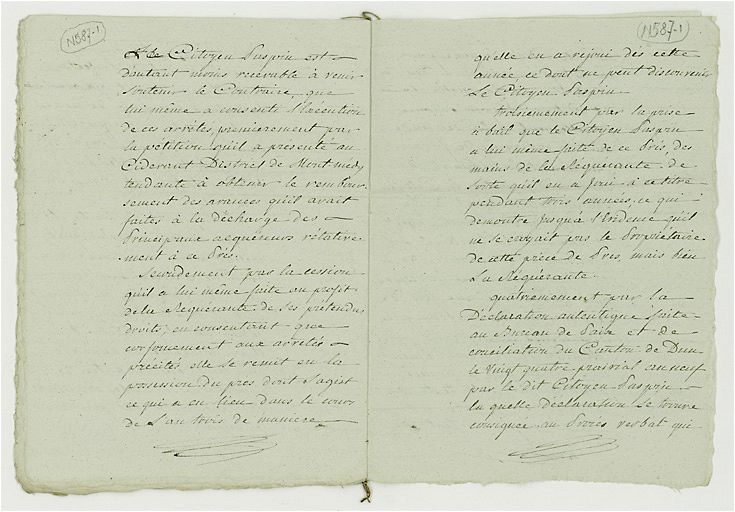 N587-1
le Citoyen Paspin est
d'autant moins recevable à venir
soutenir le Contraire, que
lui même a consenti l'exécution
de ces arrêtés premierement par
la petition qu'il a présenté au
Cidevant District de Montmédy
tendante à obtenir le rembour-
sement des avances qu'il avait
faites à la décharge des
Principaux acquéreurs rélative-
ment à ce Prés.
Secondement par la cession
qu'il a lui même faite au profit
de la Requerante de ses prétendus
droits, en consentant que
conformement aux arrêtés
précités elle se remit en la
possession du pres dont s'agist
ce qui a eu lieu dans le cours
de l'an trois de maniere
N587-1
qu'elle en a rejoui dès cette
année ce dont ne peut disconvenir
Le Citoyen Paspin
troisiemement par la prise
à bail que le Citoyen Paspin
a lui même faite de ce Prés, des
mains de la Réquerante de
sorte qu'il en a joui à ce titre
pendant trois années, ce qui
demontre jusqu'à l'Evidence qu'il
ne se croyait pas le Propriétaire
de cette piéce de Pres, mais bien
La Réquérante.
quatriemement par la
Déclaration autentique faite
au Bureau de Paix et de
conciliation du Canton de Dun
le Vingt quatre prairial an neuf
par le dit Citoyen Paspin
la quelle déclaration se trouve
consignée au Procès verbal qui